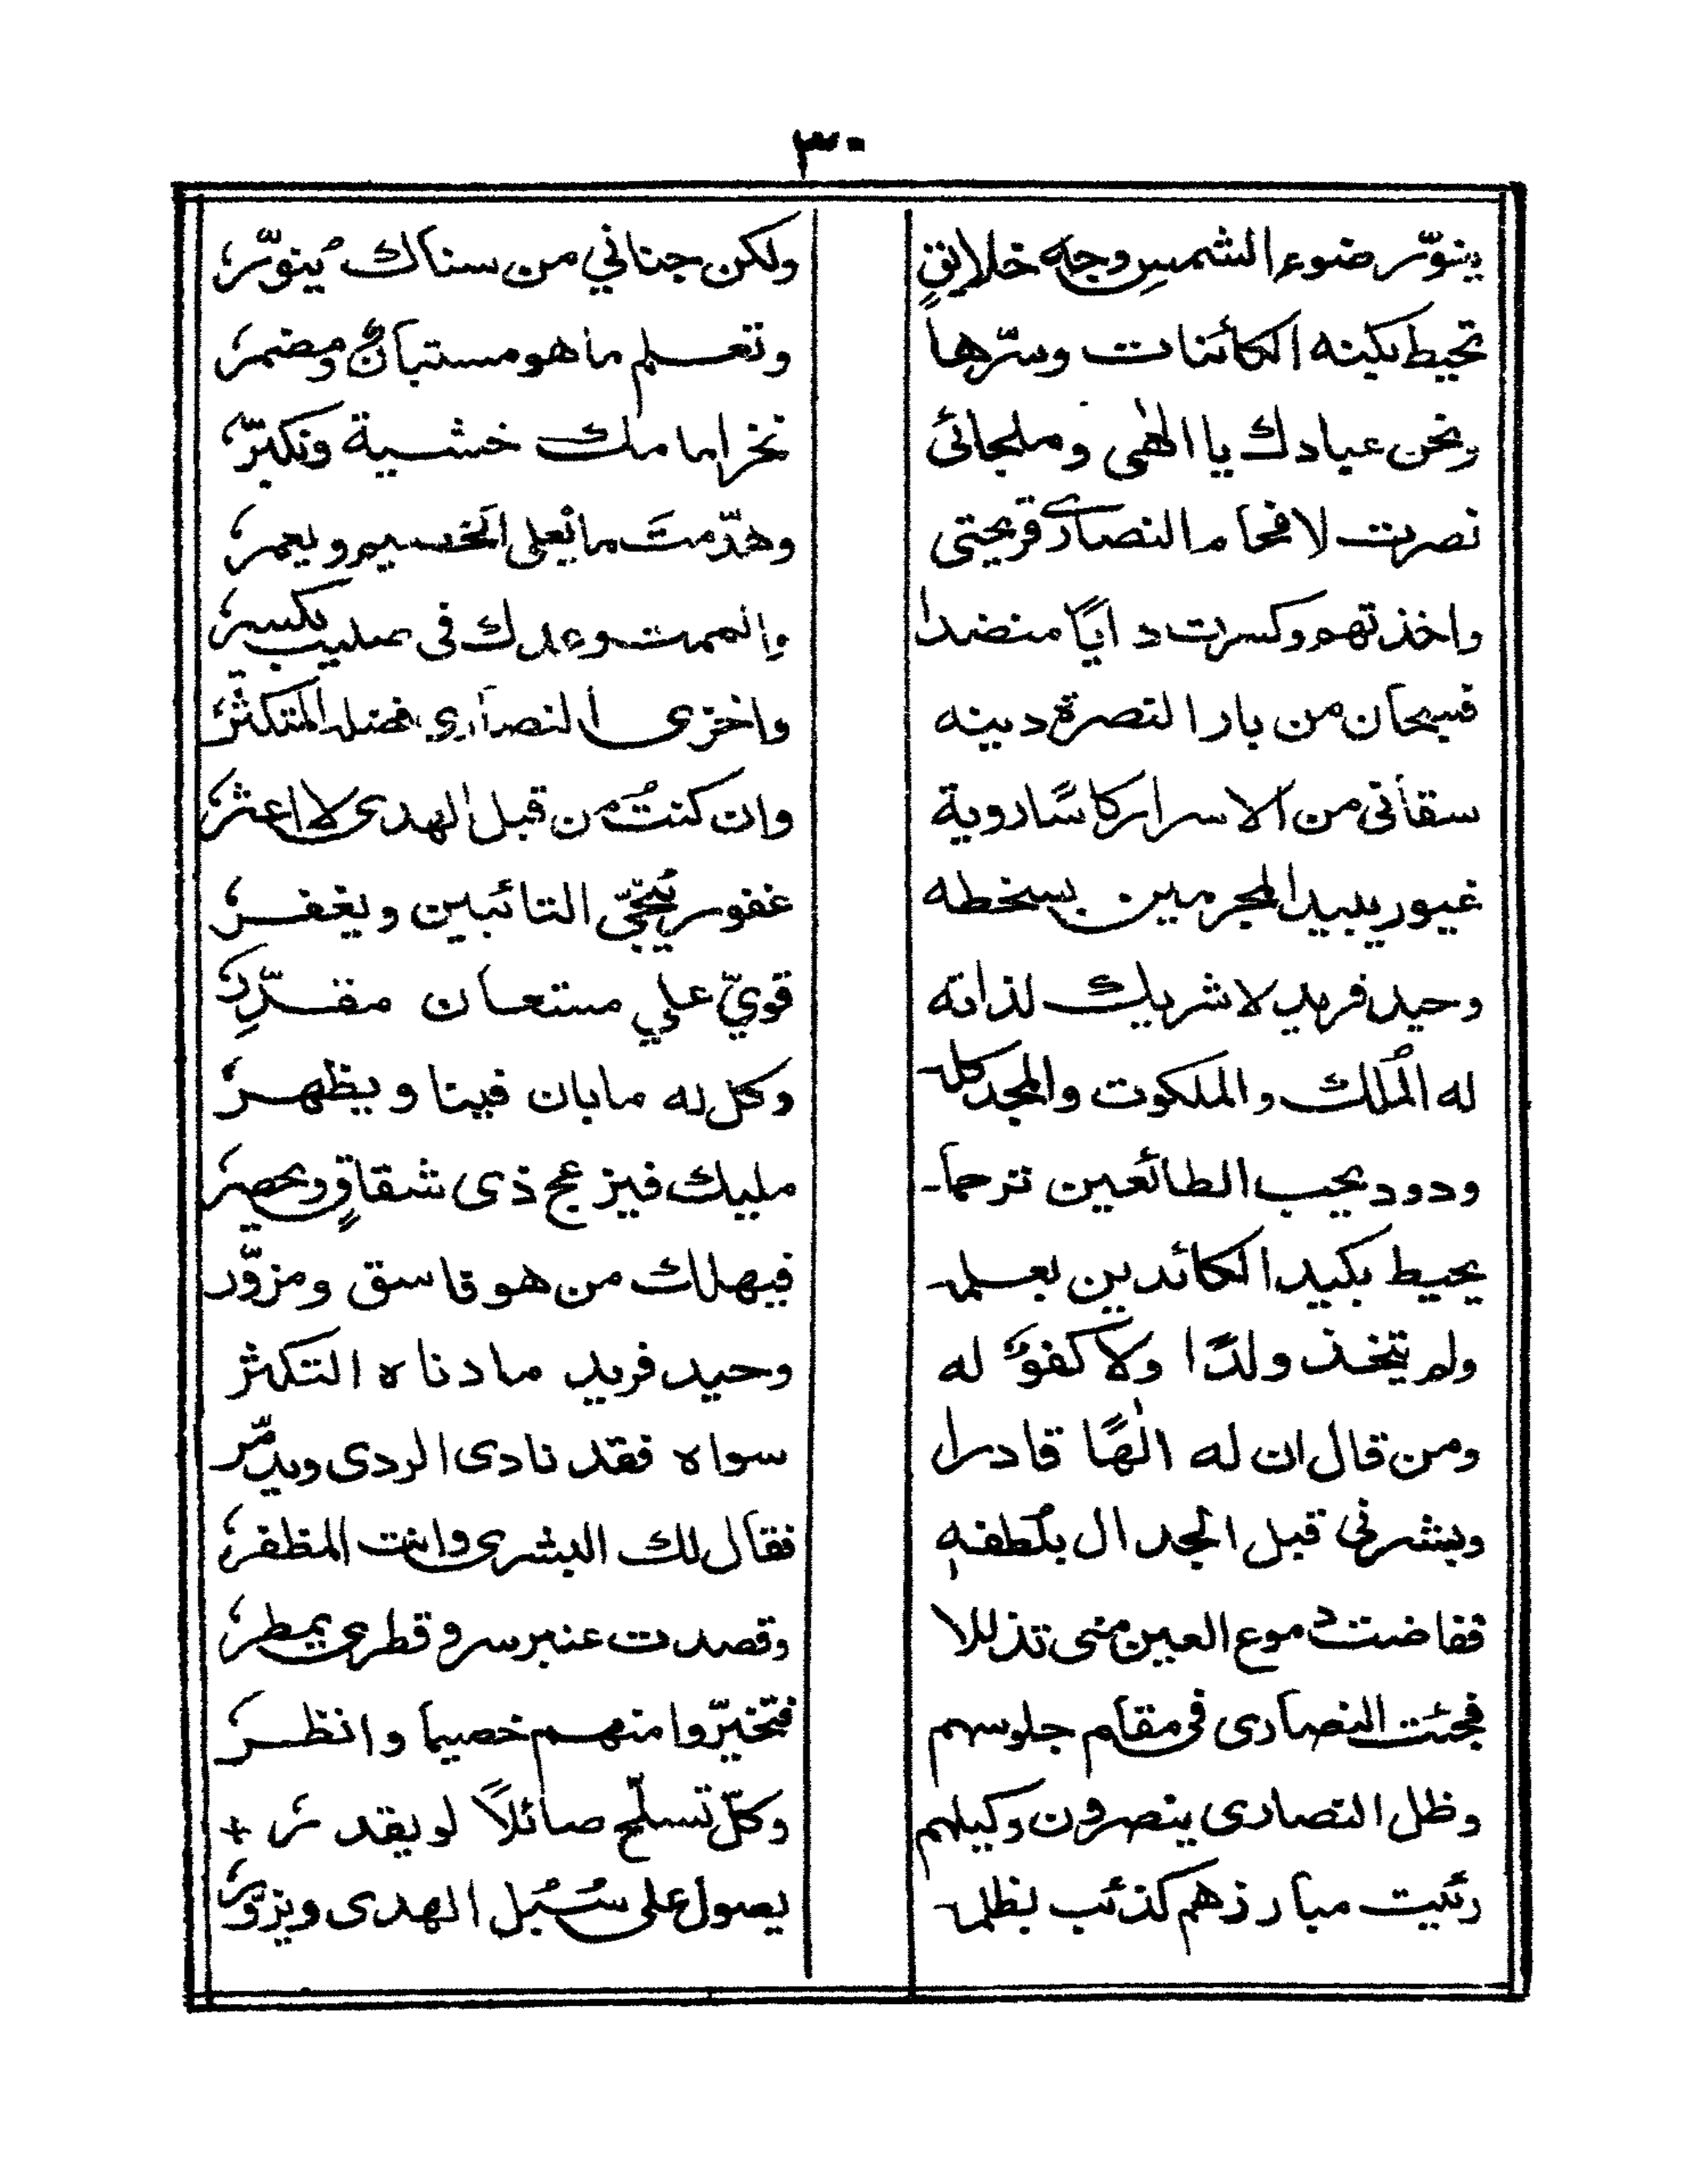 ٣٠
ينوّر ضوء الشمسِ وجه خلايقٍ ولكن جناني من سناك يُنوّرُ
تحيط بكينه الكائنات وسرّها وتعلم ما هو مستبانٌ ومضمرُ
ونحن عبادك يا الٰهى وملجائى نخر امامك خشية ونكبّرُ
نصرت لافحام النصارىٰ قريحتى وهدّمتَ ما يُعلى الخصيم ويعمرُ
واخذتهم وكسرت دايًا منضدا واتممت وعدك فى صليب يكسرُ
فسبحان من بار النصرة دينه واخزى النصارى فضله المتكثّرُ
سقانى من الاسرار كاسًا روية وان كنتُ من قبل الهدى لا اعثرُ
غيور يبيد المجرمين بسخطه غفور يُنجّى التائبين ويغفرُ
وحيد فريد لا شريك لذاته قويّ علي مستعان مقدِّرُ
له الُملك والملكوت والمجد كله وكل له ما بان فينا ويظهرُ
ودود يحب الطائعين ترحما مليك فيزعج ذى شقاقٍ ويحصرُ
يحيط بكيد الكائدين بعلمه فيهلك من هو فاسق ومزوّر
ولم يتخذ ولدًا ولا كفوٌ له وحيد فريد ما دناه التكثر
ومن قال ان له الٰهًا قادرا سواه فقد نادى الردى ويدمّر
وبشرنى قبل الجدال بلُطفهٖ فقال لك البشرى وانت المظفرُ
ففاضت دموع العين منى تذللا وقصدت عنبرسر وقطرى يمطرُ
فجئت النصارى فى مقام جلوسهم فتخيّروا منهم خصيما وانظرُ
وظل النصارى ينصرون وكيلهم وكلّ تسلّح صائلًا لو يقدرُ +
رئيت مبارزهم كذئب بظلمه يصول على سُبُل الهدى ويزوّرُ